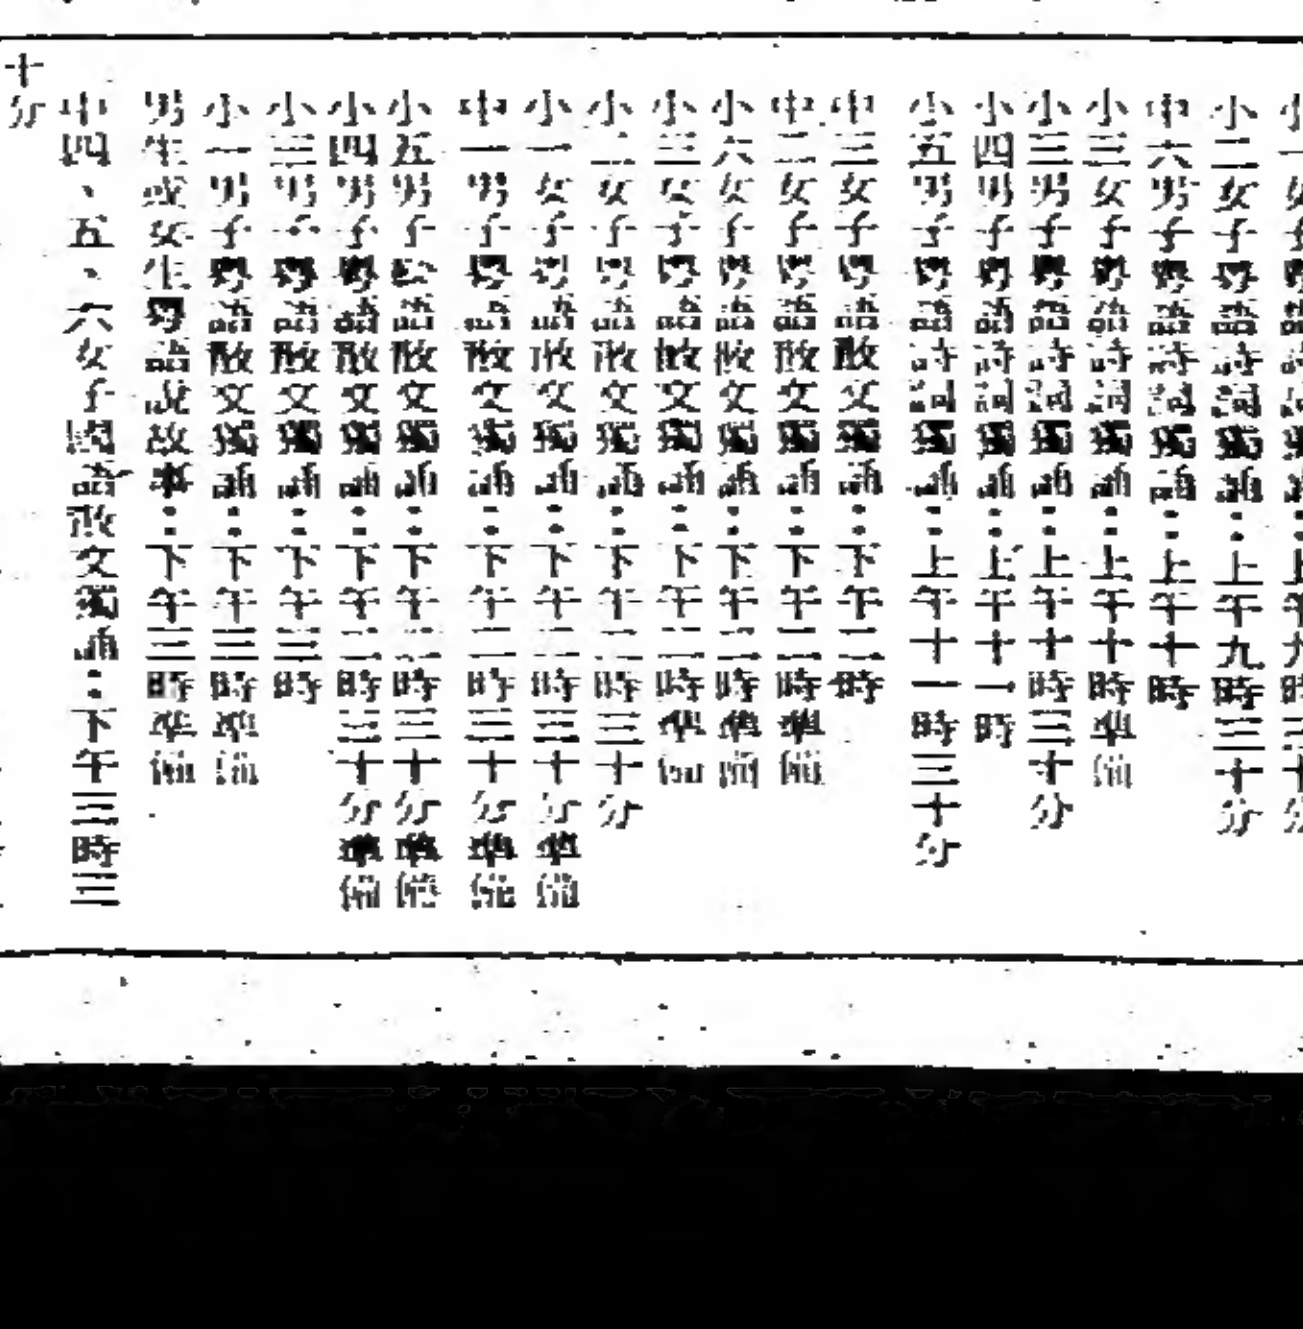 小二女子粵語詩詞獨誦：上午九時三十分
中六男子粵語詩詞獨誦：上午十時
小三女子粵語詩詞獨誦：上午十時準備
小三男子粵語詩詞獨誦：上午十時三十分
小四男子粵語詩詞獨誦：上午十一時
小五男子粵語詩詞獨誦：上午十一時三十分
中三女子粵語散文獨誦：下午二時
中二女子粵語散文獨誦：下午二時準備
小六女子粵語散文獨誦：下午二時準備
小三女子粵語散文獨誦：下午二時準備
小二女子粵語散文獨誦：下午二時三十分
小一女子粵語散文獨誦：下午二時三十分準備
中一男子粵語散文獨誦：下午二時三十分準備
小五男子粵語散文獨誦：下午二時三十分準備
小四男子粵語散文獨誦：下午二時三十分準備
小三男子粵語散文獨誦：下午三時
小一男子粵語散文獨誦：下午三時準備
男生或女生粵語說故事：下午三時準備
中四、五、六女子國語散文獨誦：下午三時三
十分